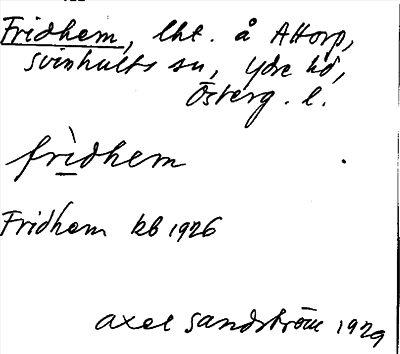 Fridhem, lht. å Attorp,
Svinhults sn, Ydre hd,
Österg. l.
frìdhem
Fridhem kb 1926
Axel Sandström 1929